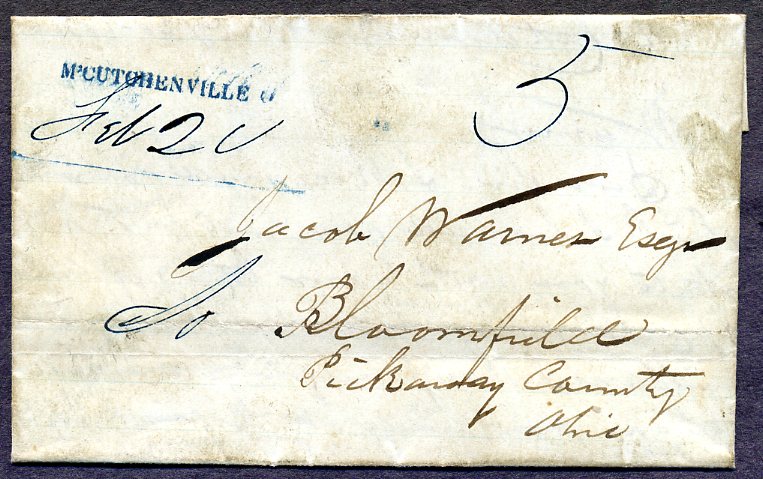 McCUTCHENVILLE O
5
Feb 20
Jacob Warner Esqr
To Bloomfield
Pickaway County
Ohio